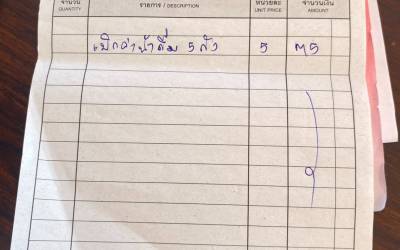 จำนวน รายการ / DESCRIPTION หน่วยละ จำนวนเงิน
QUANTITY UNIT PRICE AMOUNT
เบิกค่าน้ำดื่ม 5 ถัง 5